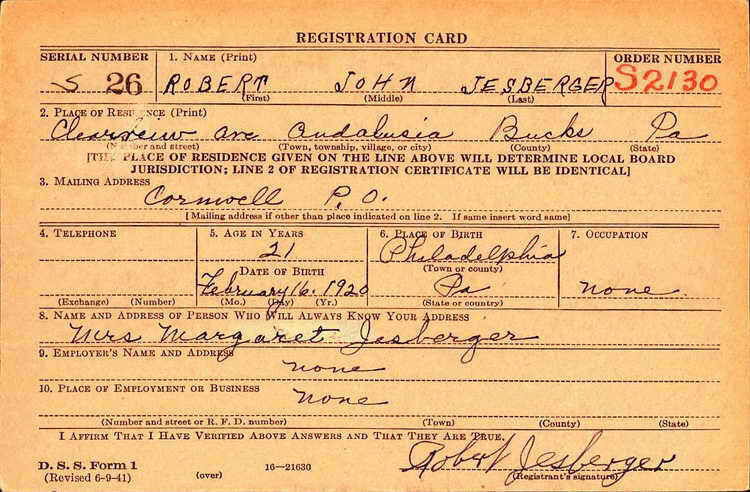 REGISTRATION CARD
SERIAL NUMBER 1. NAME (Print) ORDER NUMBER
S 26 ROBERT JOHN JESBERGER S2130
(First) (Middle) (Last)
2. PLACE OF RESIDENCE (Print)
Clearview ave Andalusia Bucks Pa
(Number and street) (Town, township, village, or city) (County) (State)
[THE PLACE OF RESIDENCE GIVEN ON THE LINE ABOVE WILL DETERMINE LOCAL BOARD
JURISDICTION; LINE 2 OF REGISTRATION CERTIFICATE WILL BE IDENTICAL]
3. MAILING ADDRESS
Cornwell P.O.
[Mailing address if other than place indicated on line 2. If same insert word same]
4. TELEPHONE 5. AGE IN YEARS 6. PLACE OF BIRTH 7. OCCUPATION
21 Philadelphia
DATE OF BIRTH (Town or county)
February 16. 1920 Pa none
(Exchange) (Number) (Mo.) (Day) (Yr.) (State or country)
8. NAME AND ADDRESS OF PERSON WHO WILL ALWAYS KNOW YOUR ADDRESS
Mrs Margaret Jesberger
9. EMPLOYER'S NAME AND ADDRESS
none
10. PLACE OF EMPLOYMENT OR BUSINESS
none
(Number and street or R. F. D. number) (Town) (County) (State)
I AFFIRM THAT I HAVE VERIFIED ABOVE ANSWERS AND THAT THEY ARE TRUE.
Robert Jesberger
D. S. S. Form 1
(Revised 6-9-41) (over) 16—21630 (Registrant's signature)